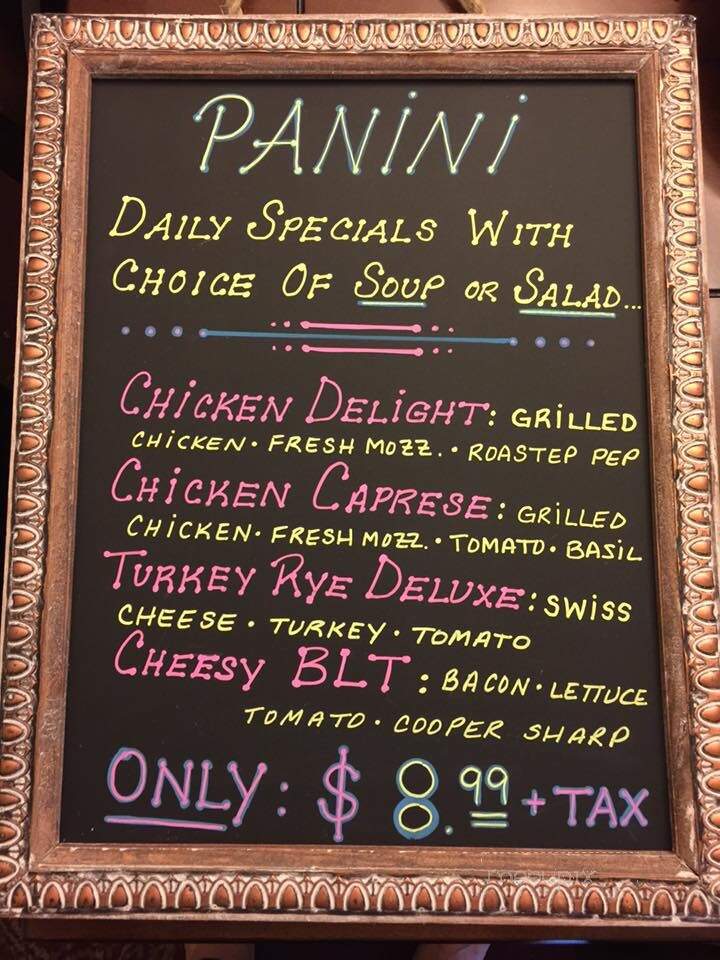 PANiNi
DAILY SPECIALS WITH
CHOICE OF SOUP OR SALAD...
CHiCKEN DELiGHT: GRiLLED
CHiCKEN • FRESH MOZZ. • ROASTEP PEP
CHiCKEN CAPRESE: GRiLLED
CHiCKEN • FRESH MOZZ. • TOMATO • BASiL
TURKEY RYE DELUXE: SWiSS
CHEESE • TURKEY • TOMATO
CHEESY BLT: BACON • LETTUCE
TOMATO • COOPER SHARP
ONLY: $8.99 + TAX